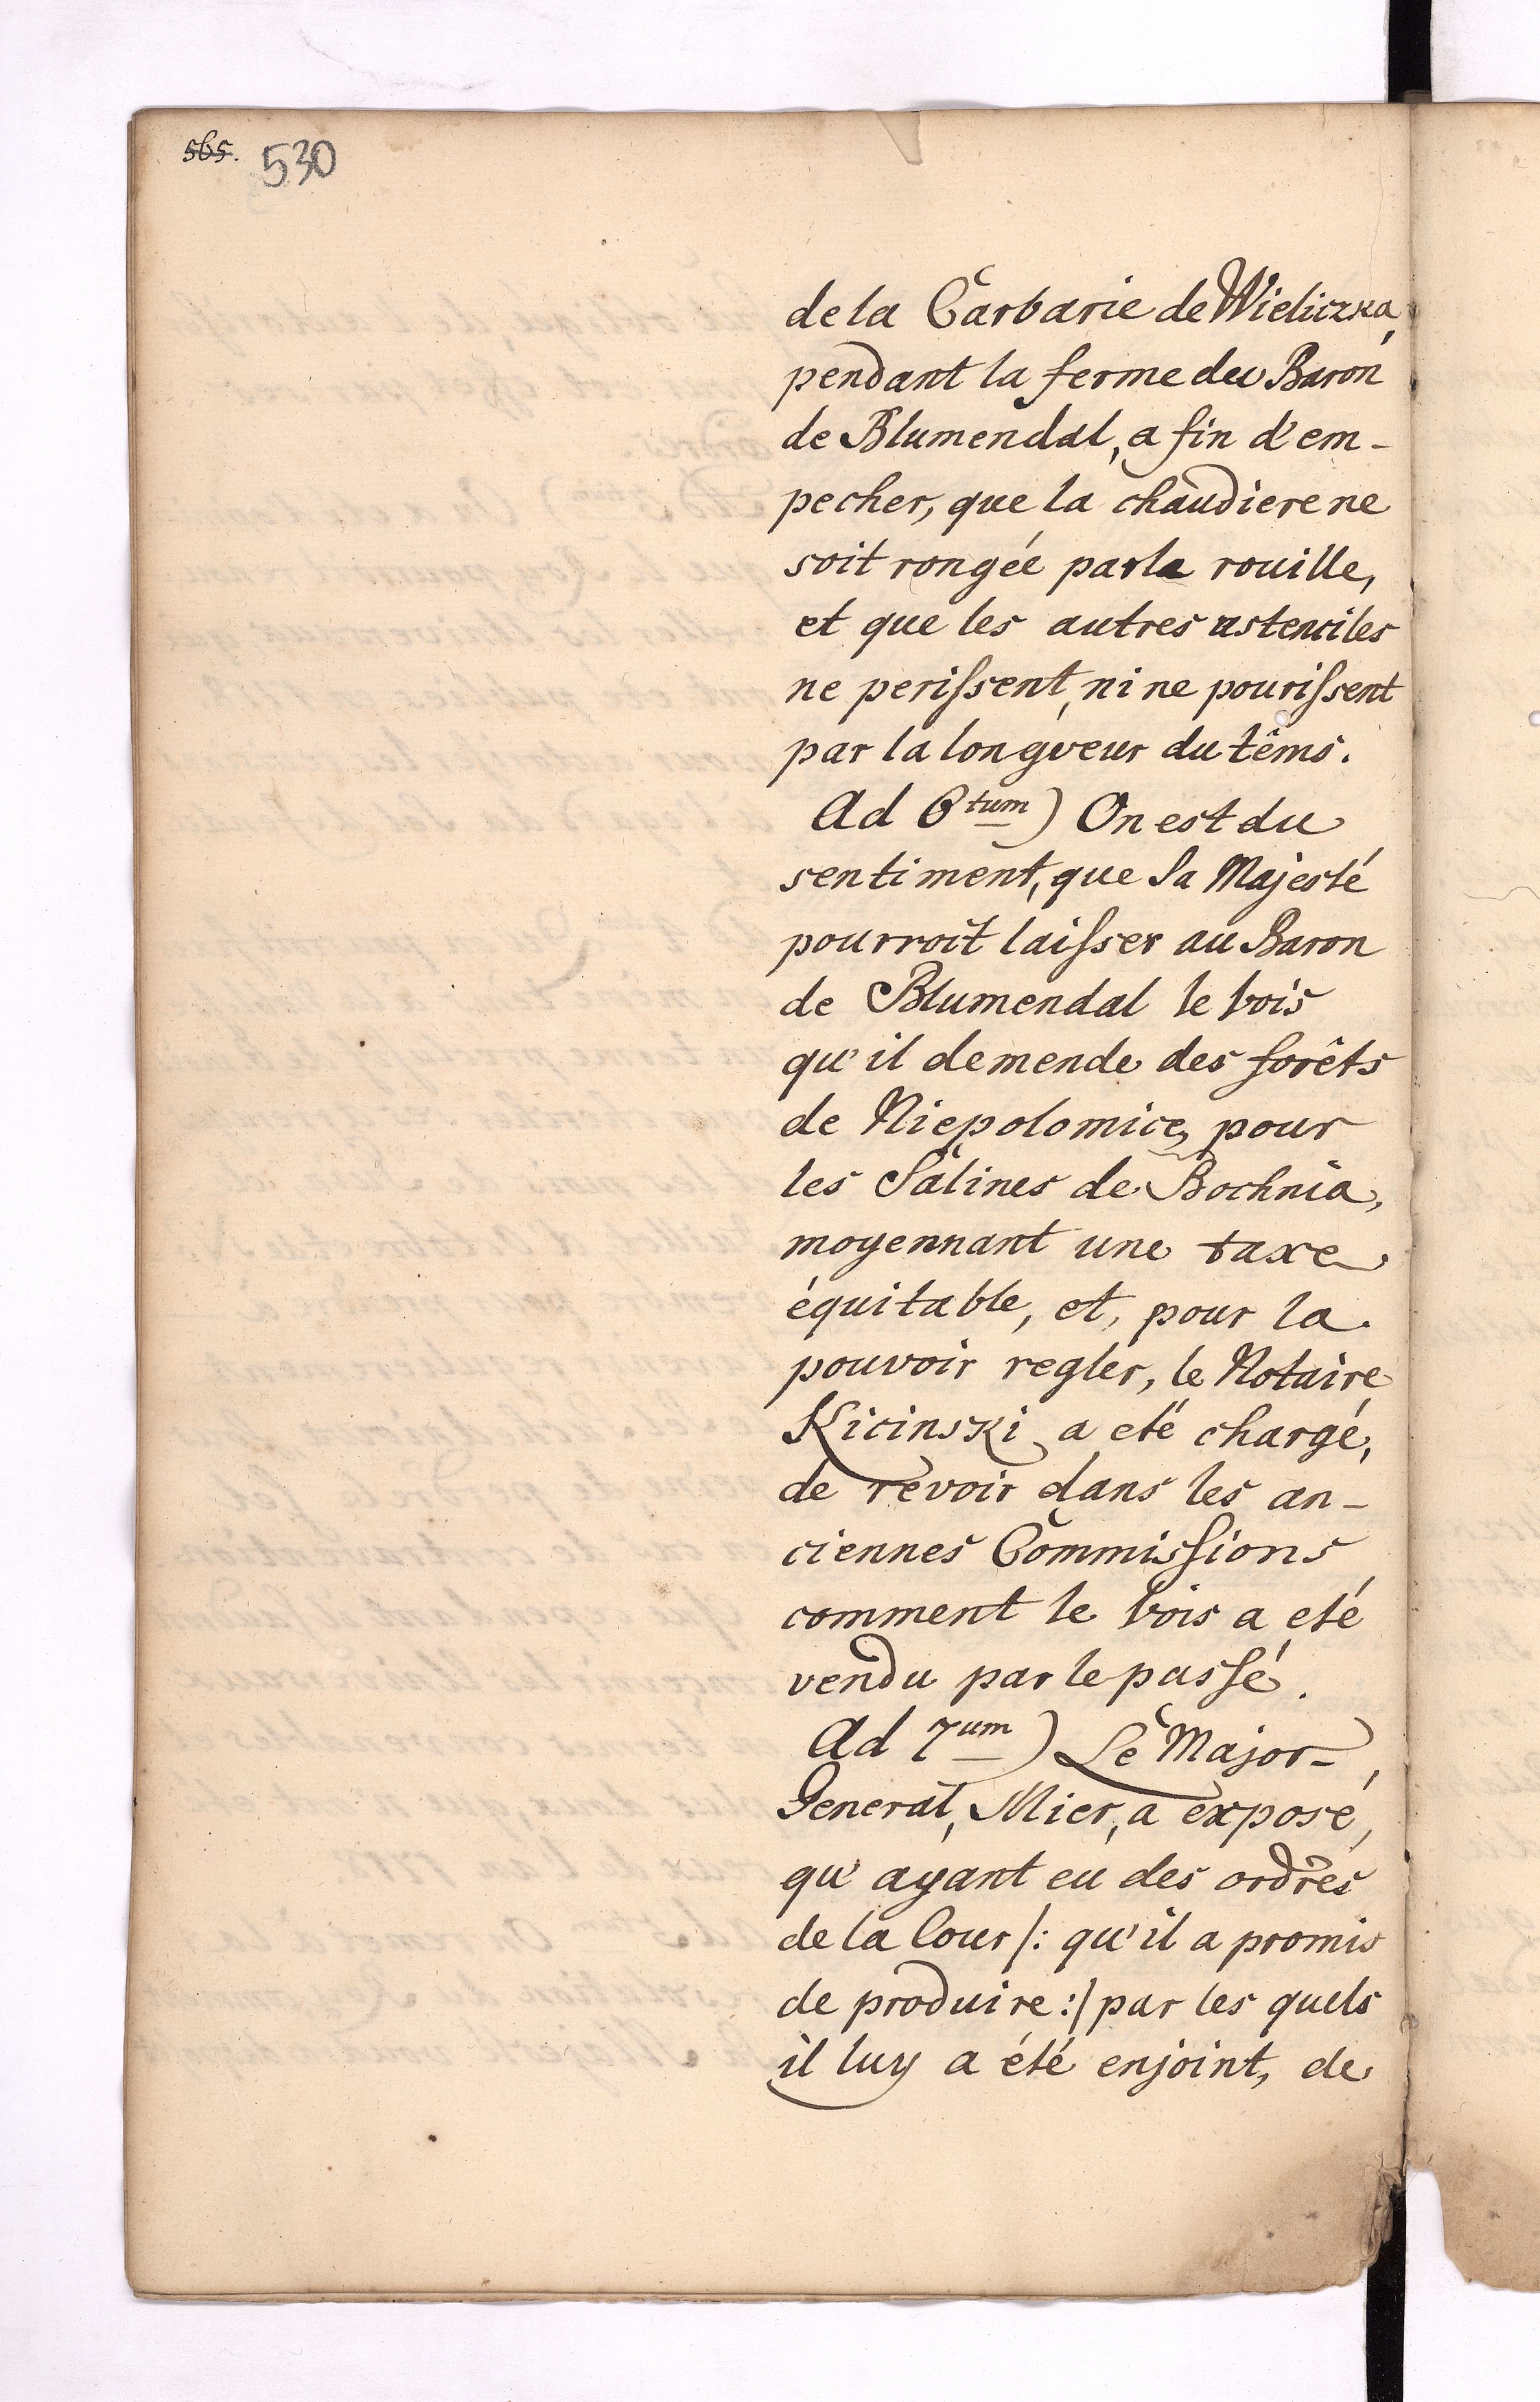 565. 530
de la Carbarie de Wieliczka,
pendant la ferme du Baron
de Blumendal, a fin d'em-
pecher, que la chaudiere ne
soit rongée par la rouille,
et que les autres ustenciles
ne perissent, ni ne pourissent
par la longveur du têms.
Ad 6tum) On est du
sentiment, que Sa Majesté
pourroit laisser au Baron
de Blumendal le bois
qu'il demende des forêts
de Niepolomice, pour
les Salines de Bochnia,
moyennant une taxe
équitable, et, pour la
pouvoir regler, le Notaire
Kicinski a eté chargé,
de revoir dans les an-
ciennes Commissions,
comment le bois a eté
vendu par le passé.
Ad 7um) Le Major-
General, Mier, a exposé,
qu'ayant eu des ordres
de la Cour /: qu'il a promis
de produire :/ par les quels
il luy a été enjoint, de